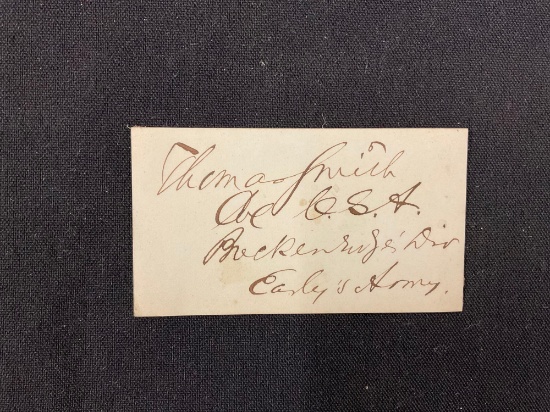 Thomas Smith
C.S.A.
Breckenridge's Div
Early's Army.